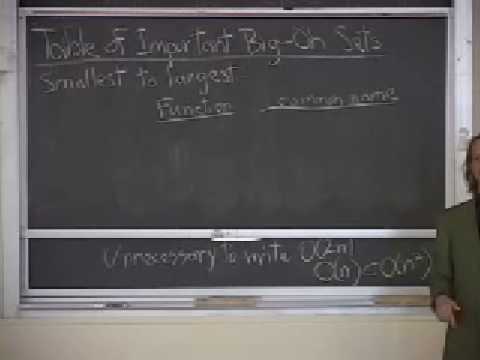 Table of Important Big-Oh Sets
Smallest to largest
Function common name
Unnecessary to write O(2n)
O(n) ⊂ O(n²)